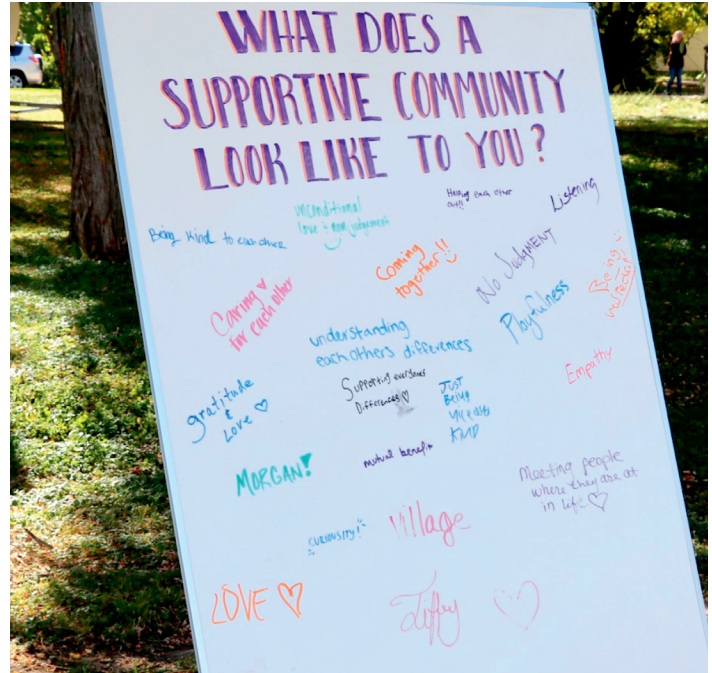 WHAT DOES A
SUPPORTIVE COMMUNITY
LOOK LIKE TO YOU?
Being kind to each other
unconditional
love & non judgement
Helping each other
out!!
Listening
Caring
for each other
Coming
together!!
No Judgment
Playfulness
Being
understanding
each others differences
Empathy
gratitude
&
Love
Supporting everyones
Differences
JUST
Being
KIND
MORGAN!
mutual benefit
Meeting people
where they are at
in life
CURIOUSITY!
Village
LOVE